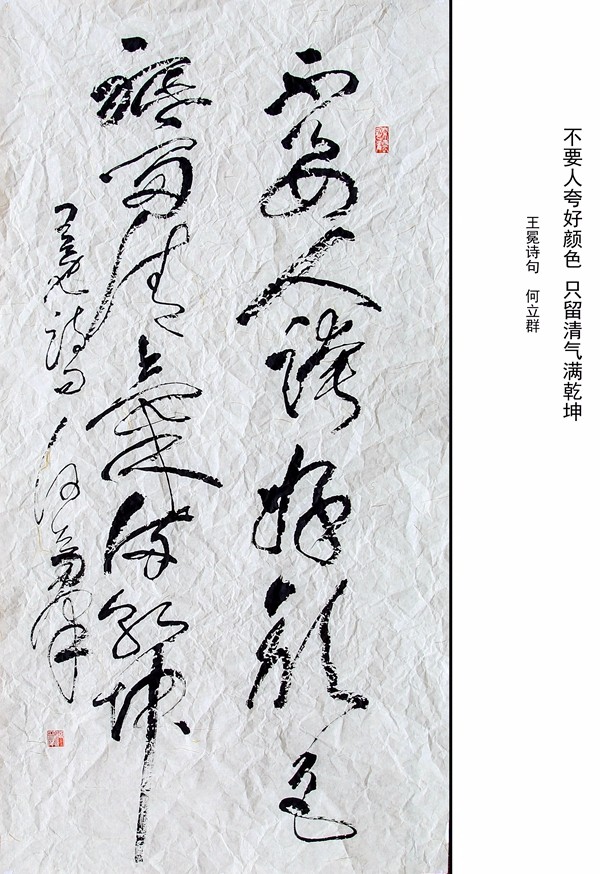 不要人夸好颜色 只留清气满乾坤
王冕诗句 何立群
不要人誇好颜色
留清氣满乾坤
王冕詩句 何立群